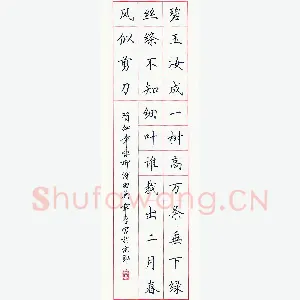 碧玉妆成一树高万条垂下绿
丝绦不知细叶谁裁出二月春
风似剪刀
贺知章咏柳诗
Shufawang.CN